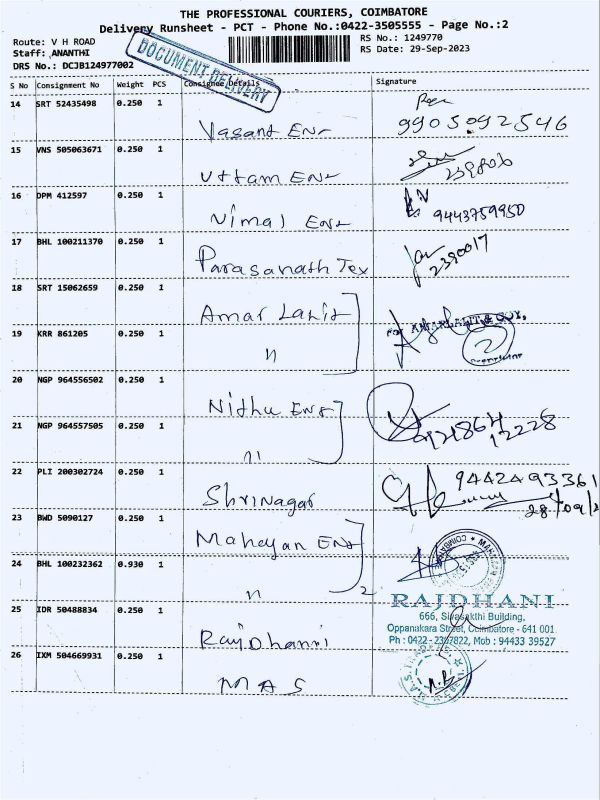 THE PROFESSIONAL COURIERS, COIMBATORE
Delivery Runsheet - PCT - Phone No.:0422-3505555 - Page No.:2
Route: V H ROAD
RS No.: 1249770
Staff: ANANTHI
RS Date: 29-Sep-2023
DRS No.: DCJB124977002
DOCUMENT DELIVERY
S No Consignment No Weight PCS Consignee Details Signature
14 SRT 52435498 0.250 1
Vasant Enr 9905092546
15 VNS 505063671 0.250 1
Uttam Enr 2398036
16 DPM 412597 0.250 1
Nimal Enr 9443759950
17 BHL 100211370 0.250 1
Parasanath Tex 2390017
18 SRT 15062659 0.250 1
Amar Lalit
For AMARLALIT & COY.
19 KRR 861205 0.250 1
"
Proprietor
20 NGP 964556502 0.250 1
Nithu Enr
21 NGP 964557505 0.250 1
"
22 PLI 200302724 0.250 1
Shrinagar 9442493361
28/09/2
23 BWD 5090127 0.250 1
Mahayan Enr
24 BHL 100232362 0.930 1
" 2
RAJDHANI
25 IDR 50488834 0.250 1
666, Sivasakthi Building,
Oppanakara Street, Coimbatore - 641 001.
RajDhanni
Ph : 0422 - 2397822, Mob : 94433 39527
26 IXM 504669931 0.250 1
MAS